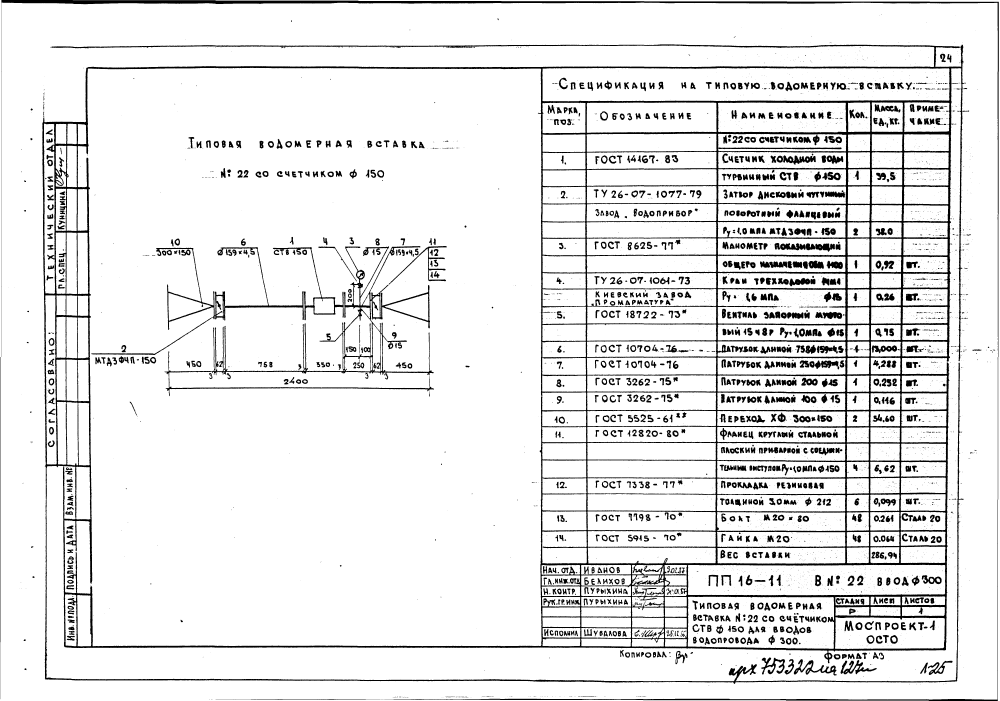 24
Типовая водомерная вставка
№ 22 со счетчиком ф 150
10
300×150
6
ф159×4,5
1
СТВ 150
4
3
8
ф15
7
ф159×4,5
11
12
13
14
200
2
МТДЗФЧП-150
5
9
ф15
150
100
450
62
768
350
250
62
450
3
3
3
3
3
2400
Спецификация на типовую водомерную вставку
Марка, поз.
Обозначение
Наименование
Кол.
Масса, ед., кг.
Примечание
№ 22 со счетчиком ф 150
1. ГОСТ 14167-83 Счетчик холодной воды
турбинный СТВ ф150 1 39,5
2. ТУ 26-07-1077-79 Затвор дисковый чугунный
Завод „Водоприбор" поворотный фланцевый
Ру=1,0 МПа МТДЗФЧП-150 2 38.0
3. ГОСТ 8625-77* Манометр показывающий
общего назначения 1 0,92 шт.
4. ТУ 26-07-1061-73 Кран трехходовой
Киевский завод „Промарматура" Ру= 1,6 МПа ф15 1 0,26 шт.
5. ГОСТ 18722-73* Вентиль запорный муфто-
вый 15ч8р Ру=1,0МПа ф15 1 0,75 шт.
6. ГОСТ 10704-76 Патрубок длиной 758ф159×4,5 1 13,000 шт.
7. ГОСТ 10704-76 Патрубок длиной 250ф159×4,5 1 4,288 шт.
8. ГОСТ 3262-75* Патрубок длиной 200 ф15 1 0,232 шт.
9. ГОСТ 3262-75* Патрубок длиной 100 ф 15 1 0,116 шт.
10. ГОСТ 5525-61** Переход ХФ 300×150 2 54.60 шт.
11. ГОСТ 12820-80* Фланец круглый стальной
плоский приварной с соедини-
тельным выступом Ру=1,0МПа ф150 4 6,62 шт.
12. ГОСТ 7338-77* Прокладка резиновая
толщиной 3,0мм ф 212 6 0,099 шт.
13. ГОСТ 7798-70* Болт М20×80 48 0.261 Сталь 20
14. ГОСТ 5915-70* Гайка М20 48 0.064 Сталь 20
Вес вставки 286,94
Нач. отд. Иванов
Гл. инж. отд. Белихов
Н. контр. Пурыхина
Рук. гр. инж. Пурыхина
Исполнил Шувалова
ПП 16-11 В № 22 ввод ф 300
Типовая водомерная
вставка № 22 со счётчиком
СТВ ф 150 для вводов
водопровода ф 300.
Стадия Лист Листов
Р 1
Моспроект-1
ОСТО
Копировал:
Формат А3
арх 753322
1-25
Согласовано:
Технический отдел
Гл. спец.
Куницина
Взам. инв. №
Подпись и дата
Инв. № подл.